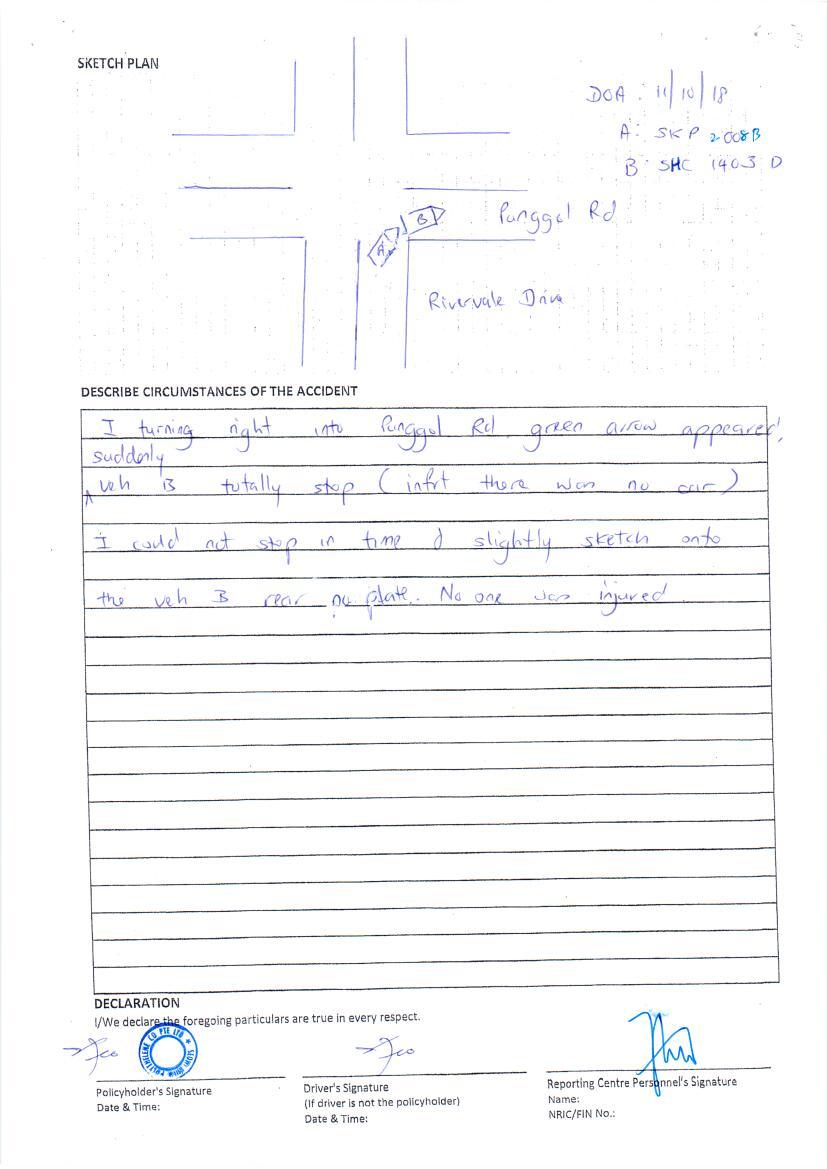 SKETCH PLAN
DOA : 11/10/18
A: SKP 2008B
B: SHC 1403 D
B
Punggol Rd
A
Rivervale Drive
DESCRIBE CIRCUMSTANCES OF THE ACCIDENT
I turning right into Punggol Rd, green arrow appeared,
suddenly
veh B totally stop (infrt there was no car)
I could not stop in time & slightly sketch onto
the veh B rear no plate. No one was injured.
DECLARATION
I/We declare the foregoing particulars are true in every respect.
CO PTE LTD
Policyholder's Signature
Date & Time:
Driver's Signature
(If driver is not the policyholder)
Date & Time:
Reporting Centre Personnel's Signature
Name:
NRIC/FIN No.: